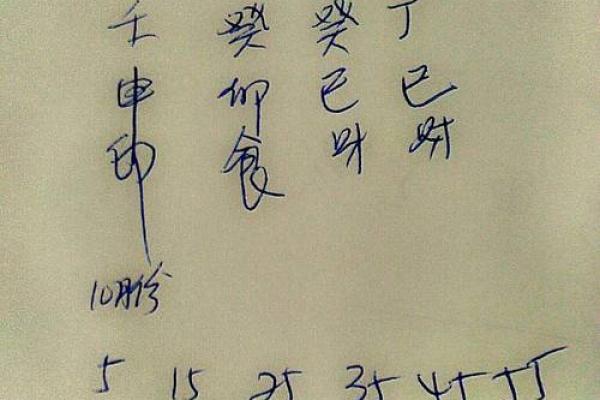 壬 癸 癸 丁
申 卯 巳 巳
印 食 财 财
10月份
5 15 25 35 45 55